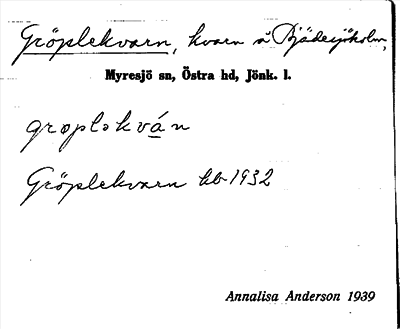 Gröplekvarn, kvarn å Bjädesjöholm,
Myresjö sn, Östra hd, Jönk. l.
grøplɘkván
Gröplekvarn hb 1932
Annalisa Anderson 1939